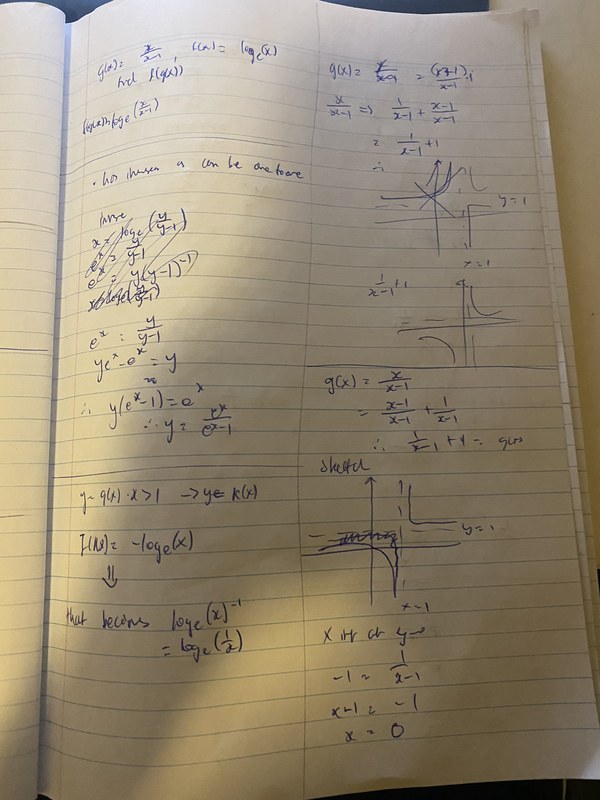 g(x) = x/(x-1), f(x) = loge(x)
find f(g(x))
f(g(x)) = loge(x/(x-1))
can be one to one
Inverse
x = loge(y/(y-1))
e^x = y/(y-1)
e^x = y(y-1)^-1
e^x = y/(y-1)
ye^x - e^x = y
∴ y(e^x-1) = e^x
∴ y = e^x/(e^x-1)
y = g(x) · x>1 → y = k(x)
= -loge(x)
⇓
that becomes loge(x)^-1
= loge(1/x)
g(x) = x/(x-1) = (x-1)+1/(x-1)
x/(x-1) => 1/(x-1) + (x-1)/(x-1)
= 1/(x-1) + 1
∴
y=1
x=1
1/(x-1) + 1
g(x) = x/(x-1)
= (x-1)/(x-1) + 1/(x-1)
∴ 1/(x-1) + 1 = g(x)
Sketch
y=1
x=1
x int at y=0
-1 = 1/(x-1)
x-1 = -1
x = 0